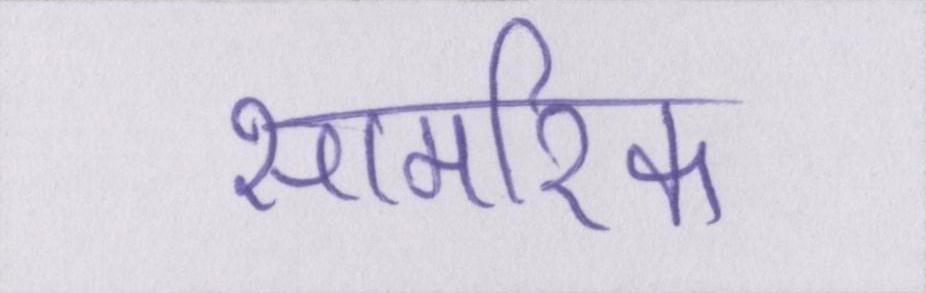 सामरिक